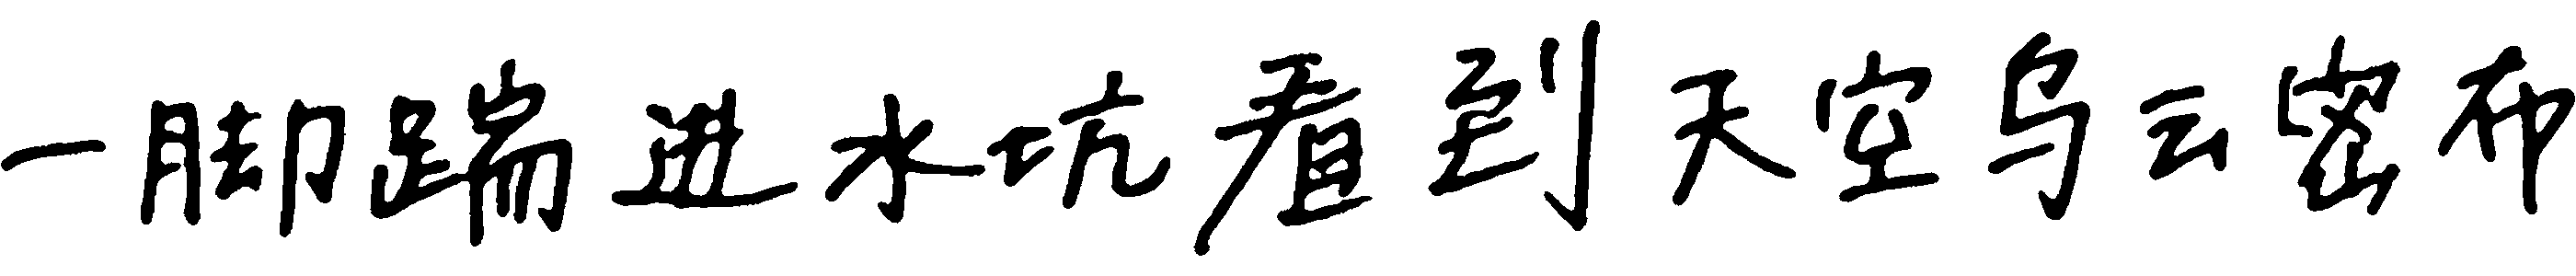 一脚踹进水坑看到天空乌云密布